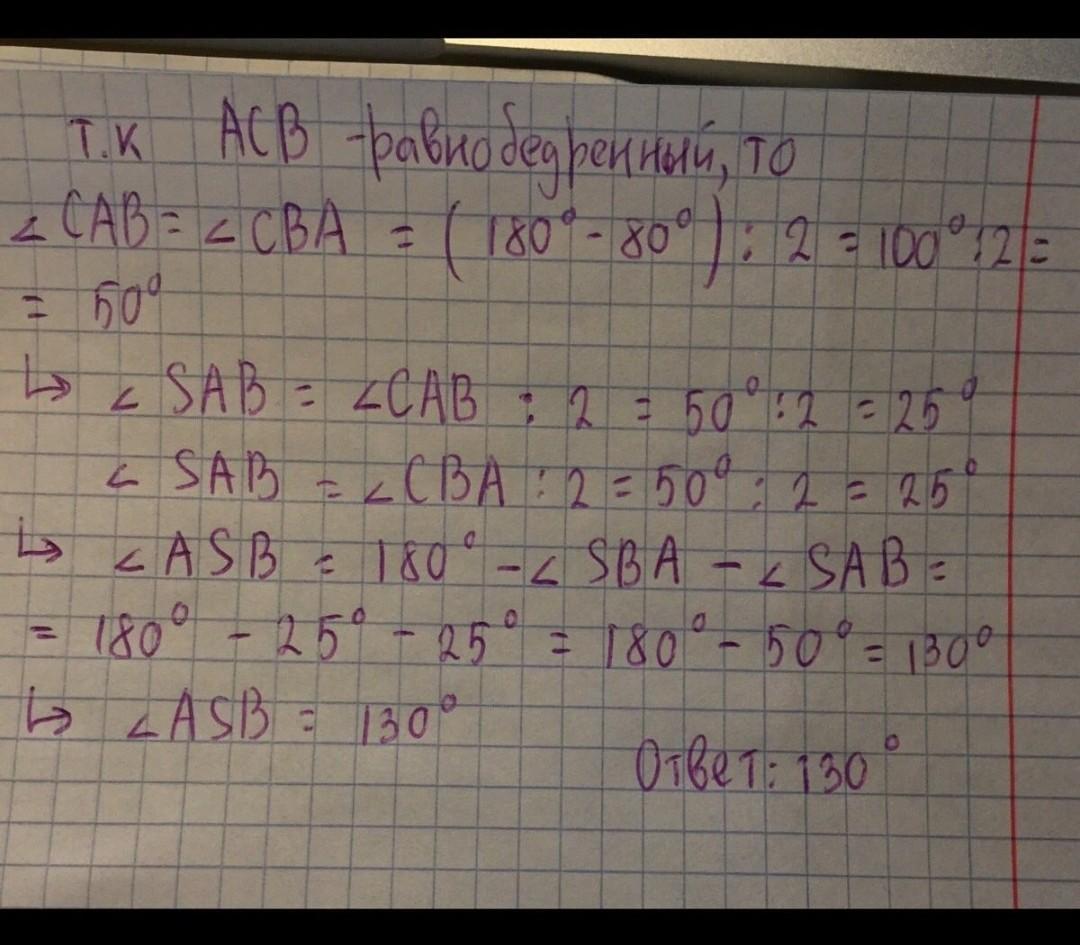 т.к ACB -равнобедренный, то
∠CAB = ∠CBA = (180° - 80°) : 2 = 100° : 2 =
= 50°
↳ ∠SAB = ∠CAB : 2 = 50° : 2 = 25°
∠SAB = ∠CBA : 2 = 50° : 2 = 25°
↳ ∠ASB = 180° - ∠SBA - ∠SAB =
= 180° - 25° - 25° = 180° - 50° = 130°
↳ ∠ASB = 130°
Ответ: 130°